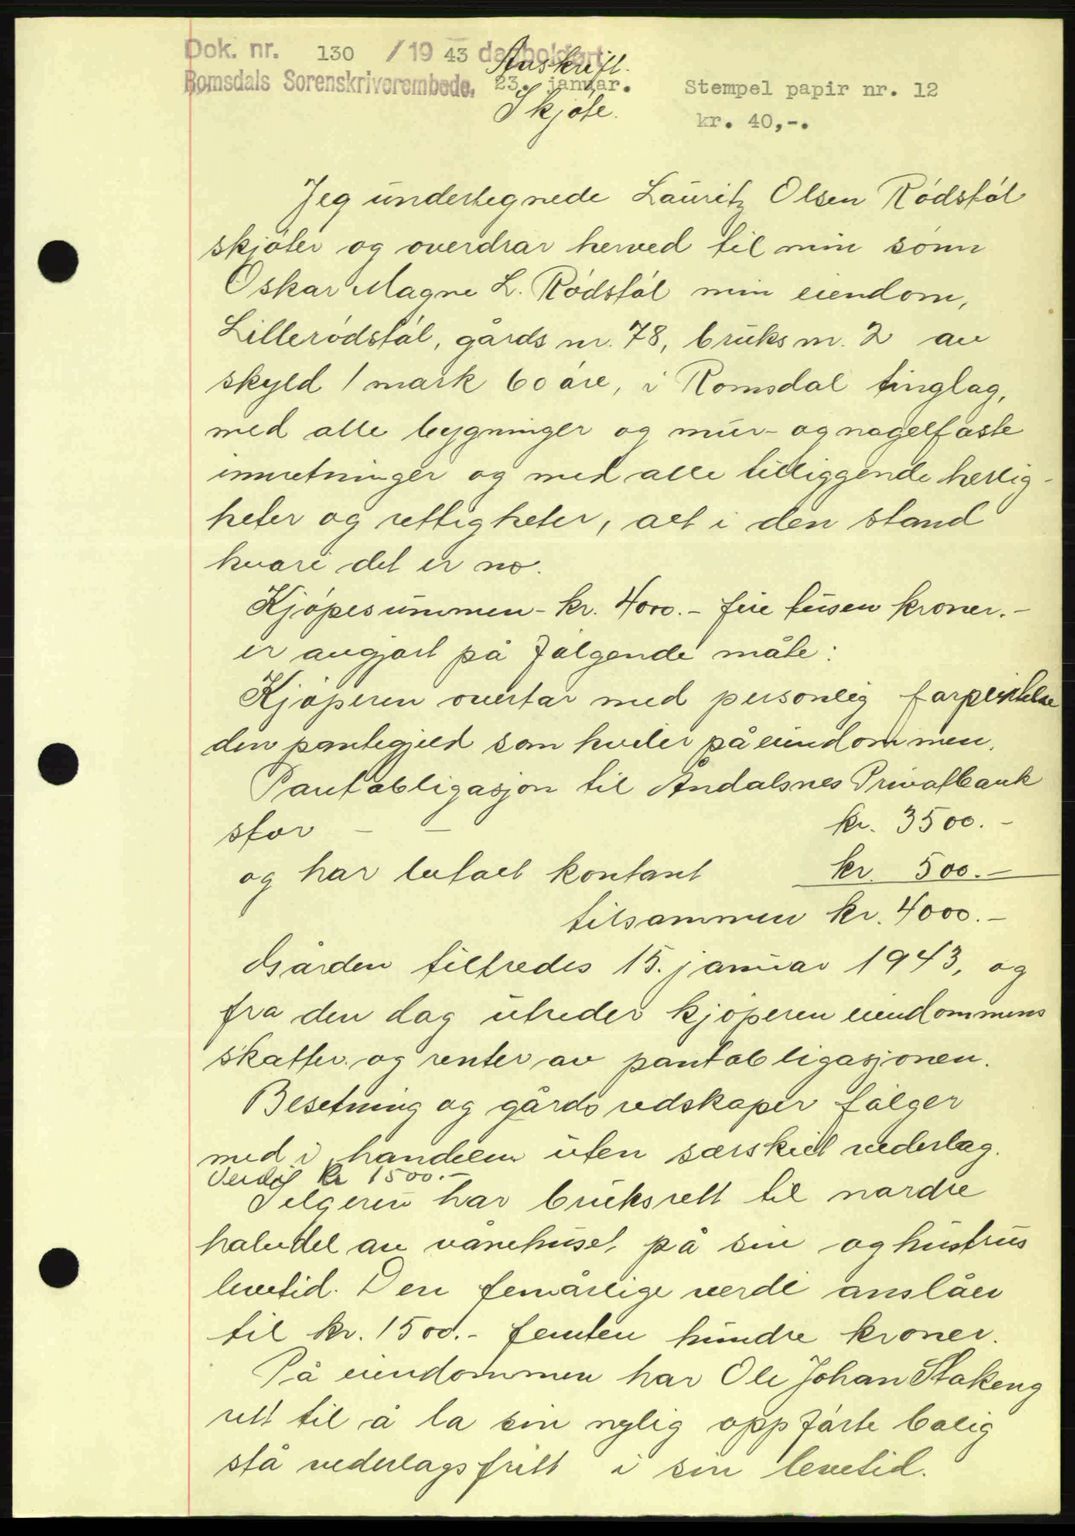 Dok. nr. 130 / 1943 dagbokført
Avskrift.
Romsdals Sorenskriverembede, 23. januar. Stempel papir nr. 12
Skjøte. kr. 40,-.
Jeg undertegnede Lauritz Olsen Rødstøl
skjøter og overdrar herved til min sønn
Oskar Magne L. Rødstøl min eiendom,
Lillerødstøl, gårds nr. 78, bruks nr. 2 av
skyld 1 mark 60 øre, i Romsdal tinglag,
med alle bygninger og mur- og nagelfaste
innretninger og med alle tilliggende herlig-
heter og rettigheter, alt i den stand
hvori det er no.
Kjøpesummen - kr. 4000.- fire tusen kroner.-
er avgjort på følgende måte:
Kjøperen overtar med personlig forpliktelse
den pantegjeld som hviler på eiendommen.
Pantobligasjon til Åndalsnes Privatbank
stor — — kr. 3500.-
og har betalt kontant kr. 500.-
tilsammen kr. 4000.-
Gården tiltredes 15. januar 1943, og
fra den dag utreder kjøperen eiendommens
skatter og renter av pantobligasjonen.
Besetning og gårds redskaper følger
med i handelen uten særskilt vederlag.
Verdi kr 1500.-
Selgeren har bruksrett til nordre
halvdel av vånehuset på sin og hustrus
levetid. Den femårlige verdi anslåes
til kr. 1500.- femten hundre kroner.
På eiendommen har Ole Johan Stokeng
rett til å la sin nylig oppførte bolig
stå vederlagsfritt i sin levetid.